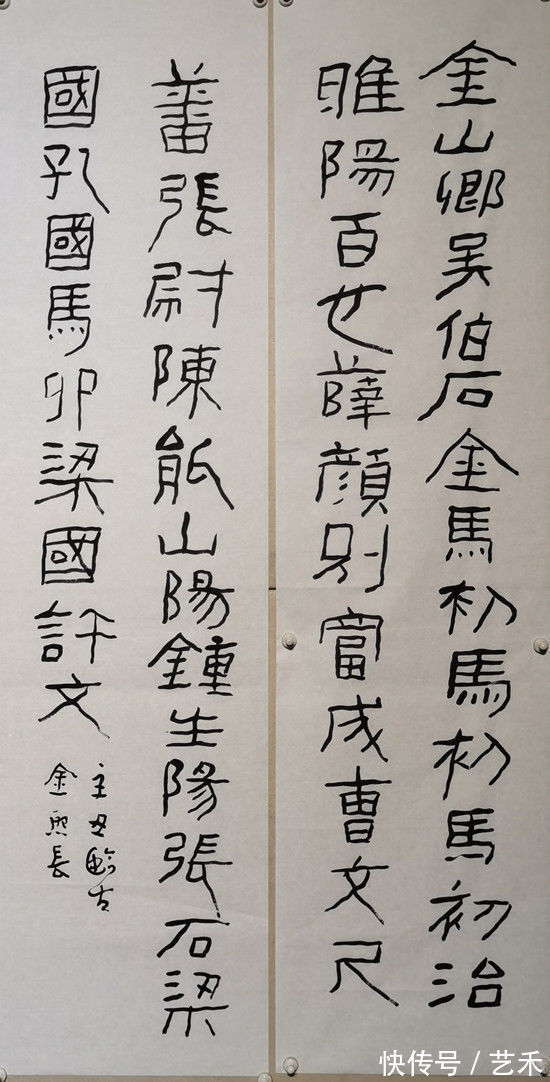 金山鄉吴伯石金馬初馬初馬初治
睢陽百世薛顏別富成曹文尺
蕃張尉陳能山陽鍾生陽張石梁
國孔國馬卯梁國許文
古
金熙長
快传号/艺禾